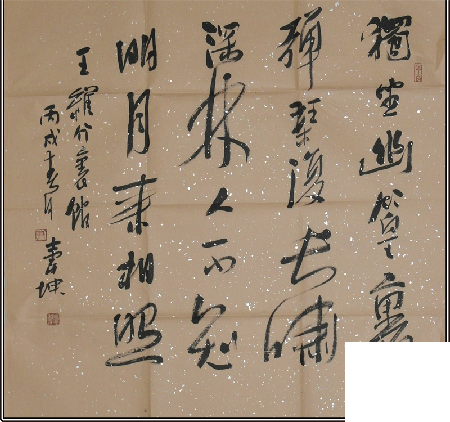 獨坐幽篁裏
彈琴復長嘯
深林人不知
明月來相照
王維竹裏館
丙戌 月 壽坤